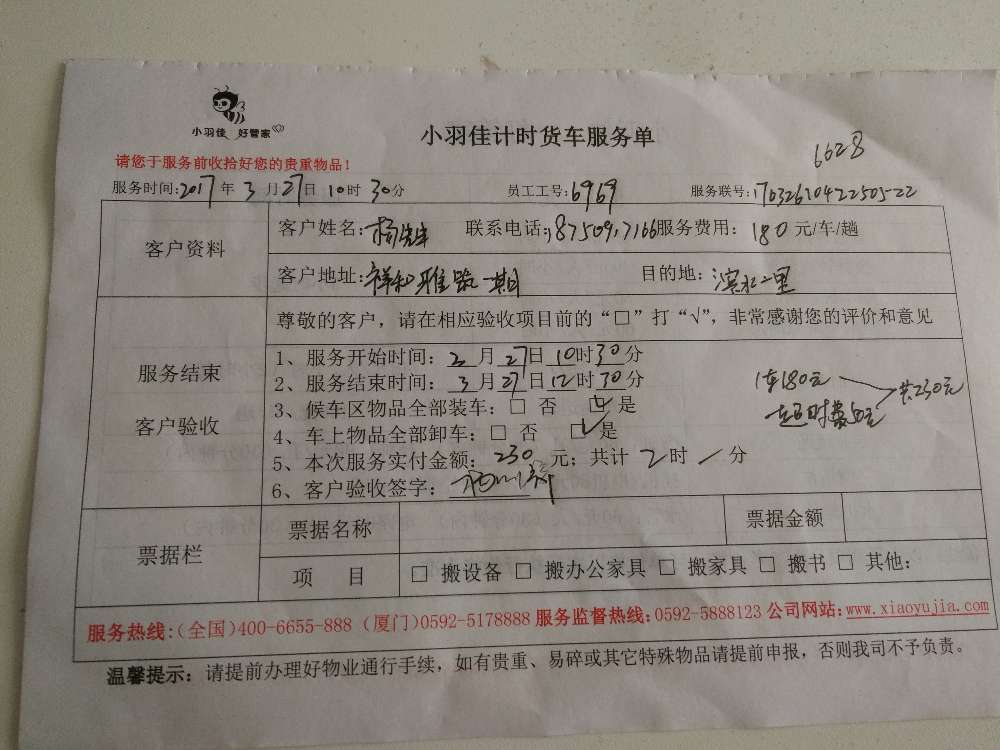 小羽佳 好管家
小羽佳计时货车服务单
6628
请您于服务前收拾好您的贵重物品！
服务时间:2017年 3 月27日 10时 30分 员工工号:6969 服务联号:17032610422505-22
客户资料
客户姓名:杨先生 联系电话: 服务费用: 180 元/车/趟
客户地址:祥和雅筑一期 目的地: 滨水一里
尊敬的客户，请在相应验收项目前的“□”打“√”，非常感谢您的评价和意见
服务结束
客户验收
1、服务开始时间: 2 月 27日 10时30分
2、服务结束时间: 3 月27日12时30分
3、候车区物品全部装车:□ 否 ☑ 是
4、车上物品全部卸车:□ 否 ☑ 是
5、本次服务实付金额: 230 元；共计 2 时 / 分
6、客户验收签字:
1车180元
超时费50元
共230元
票据栏
票据名称 票据金额
项 目 □ 搬设备 □ 搬办公家具 □ 搬家具 □ 搬书 □ 其他:
服务热线:(全国)400-6655-888 (厦门)0592-5178888 服务监督热线:0592-5888123 公司网站:www.xiaoyujia.com
温馨提示: 请提前办理好物业通行手续，如有贵重、易碎或其它特殊物品请提前申报，否则我司不予负责。